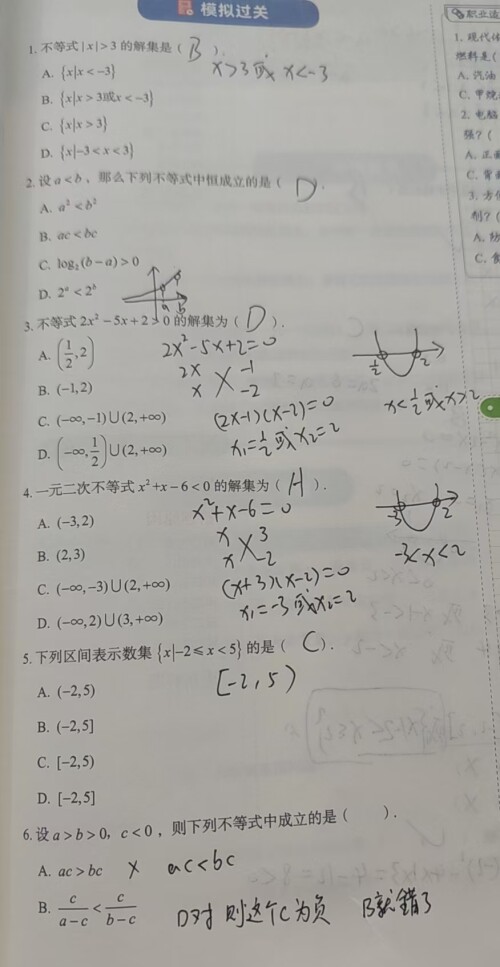 模拟过关
1. 不等式|x|>3的解集是( B ).
x>3或x<-3
A. {x|x<-3}
B. {x|x>3或x<-3}
C. {x|x>3}
D. {x|-3<x<3}
2. 设a<b，那么下列不等式中恒成立的是( D ).
A. a²<b²
B. ac<bc
C. log₂(b-a)>0
D. 2ᵃ<2ᵇ
a b
3. 不等式2x²-5x+2>0的解集为( D ).
A. (1/2, 2)
2x²-5x+2=0
B. (-1,2)
2x -1
x -2
1/2 2
C. (-∞,-1)∪(2,+∞)
(2x-1)(x-2)=0
x<1/2或x>2
D. (-∞, 1/2)∪(2,+∞)
x₁=1/2或x₂=2
4. 一元二次不等式x²+x-6<0的解集为( A ).
A. (-3,2)
x²+x-6=0
-3 2
B. (2,3)
x 3
x -2
-3<x<2
C. (-∞,-3)∪(2,+∞)
(x+3)(x-2)=0
D. (-∞,2)∪(3,+∞)
x₁=-3或x₂=2
5. 下列区间表示数集{x|-2≤x<5}的是( C ).
A. (-2,5)
[-2,5)
B. (-2,5]
C. [-2,5)
D. [-2,5]
6. 设a>b>0，c<0，则下列不等式中成立的是( ).
A. ac>bc × ac<bc
B. c/(a-c)<c/(b-c)
D对 则这个C为负 B就错了
职业适
1. 现代体
燃料是(
A. 汽油
C. 甲烷
2. 电脑
强？(
A. 正面
C. 背面
A. 纺
C. 食